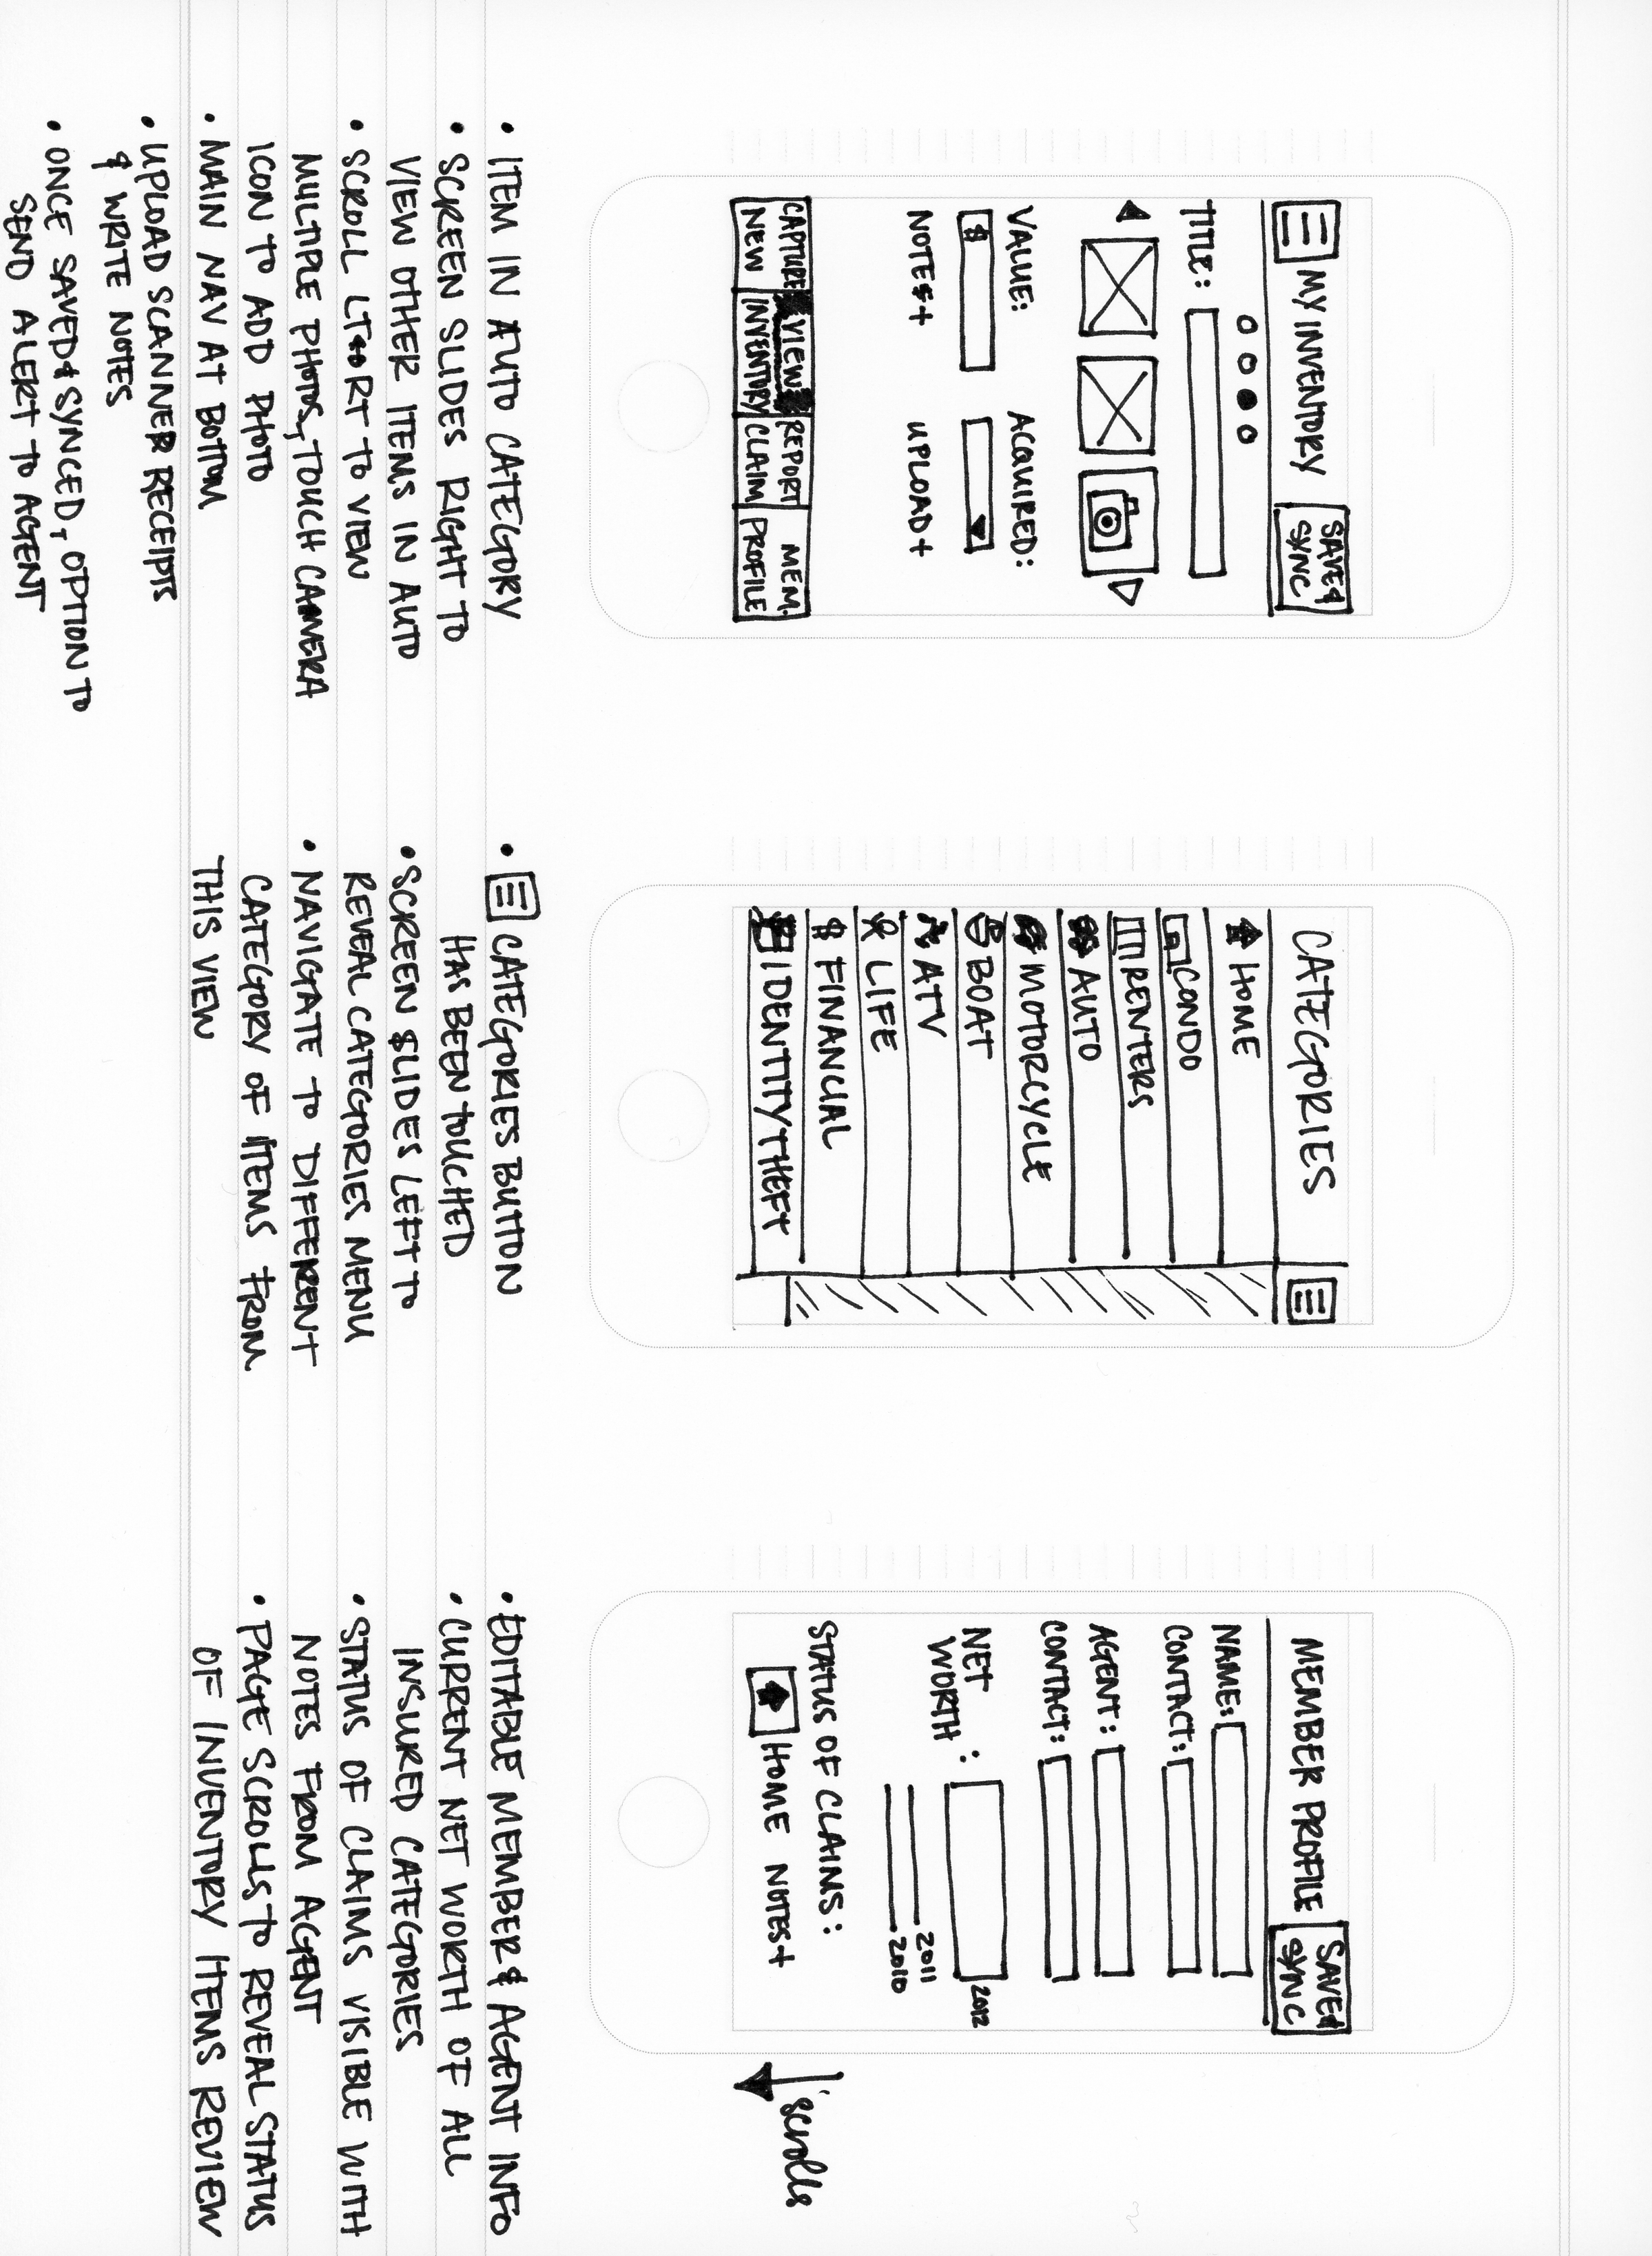 MY INVENTORY
SAVE &
SYNC
TITLE:
VALUE:
ACQUIRED:
$
NOTES +
UPLOAD +
CAPTURE
NEW
VIEW
INVENTORY
REPORT
CLAIM
MEM.
PROFILE
• ITEM IN AUTO CATEGORY
• SCREEN SLIDES RIGHT TO
VIEW OTHER ITEMS IN AUTO
• SCROLL LT → RT TO VIEW
MULTIPLE PHOTOS, TOUCH CAMERA
ICON TO ADD PHOTO
• MAIN NAV AT BOTTOM
• UPLOAD SCANNER RECEIPTS
& WRITE NOTES
• ONCE SAVED & SYNCED, OPTION TO
SEND ALERT TO AGENT
CATEGORIES
HOME
CONDO
RENTERS
AUTO
MOTORCYCLE
BOAT
ATV
LIFE
$ FINANCIAL
IDENTITY THEFT
• CATEGORIES BUTTON
HAS BEEN TOUCHED
• SCREEN SLIDES LEFT TO
REVEAL CATEGORIES MENU
• NAVIGATE TO DIFFERENT
CATEGORY OF ITEMS FROM
THIS VIEW
MEMBER PROFILE
SAVE &
SYNC
NAME:
CONTACT:
AGENT:
CONTACT:
NET
WORTH:
2012
2011
2010
STATUS OF CLAIMS:
HOME NOTES +
scrolls
• EDITABLE MEMBER & AGENT INFO
• CURRENT NET WORTH OF ALL
INSURED CATEGORIES
• STATUS OF CLAIMS VISIBLE WITH
NOTES FROM AGENT
• PAGE SCROLLS TO REVEAL STATUS
OF INVENTORY ITEMS REVIEW